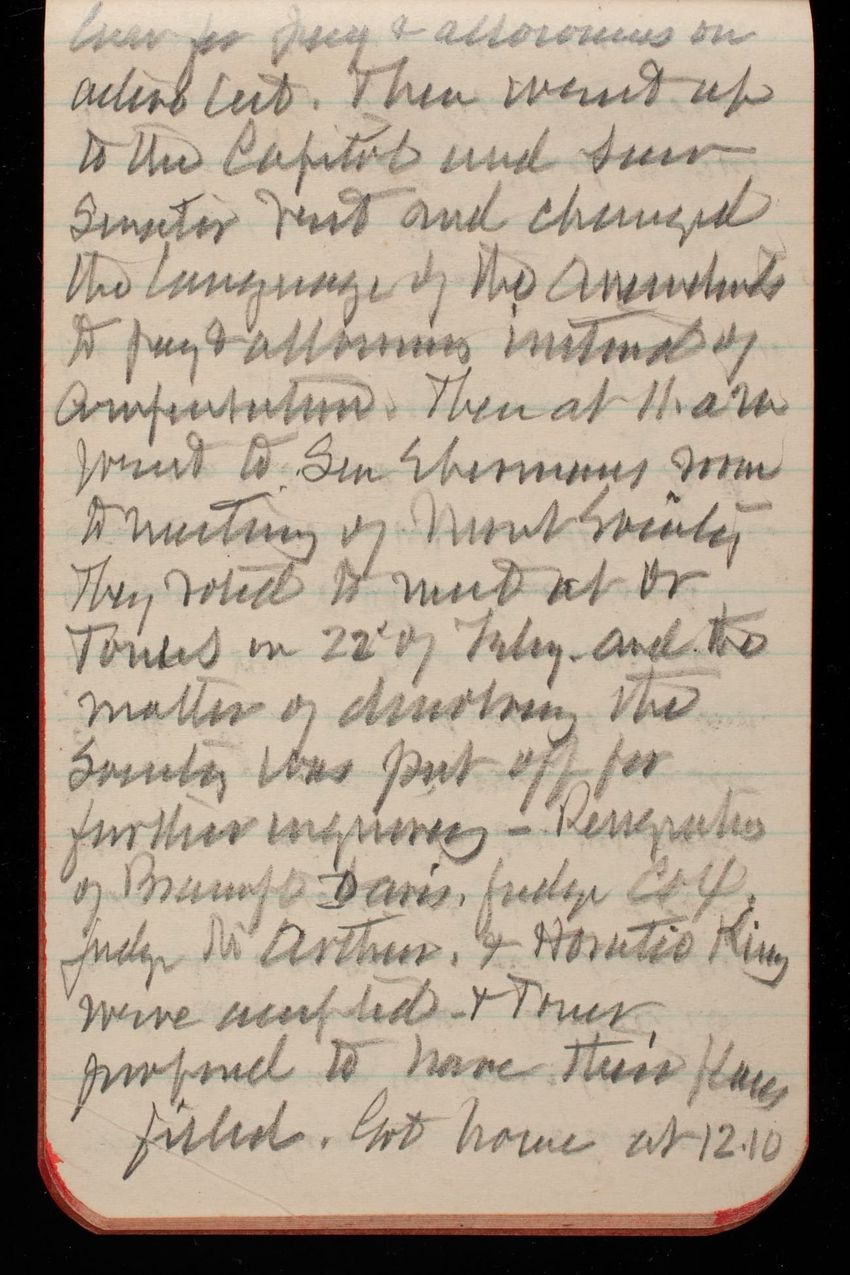 for pay & allowances on
active list. Then went up
to the Capitol and saw
Senator and changed
the language of the Amendments
to pay & allowances instead of
Then at 11. a m
went to Sen room
to meeting of Mont Society
They voted to meet at Dr
Toners on 22d of Feby. and the
matter of dissolving the
Society was put off for
further inquiries -
of Davis. Judge Cox,
judge Mc Arthur. & Horatio King
were accepted & Toner
proposed to have their places
filled. Got home at 12.10